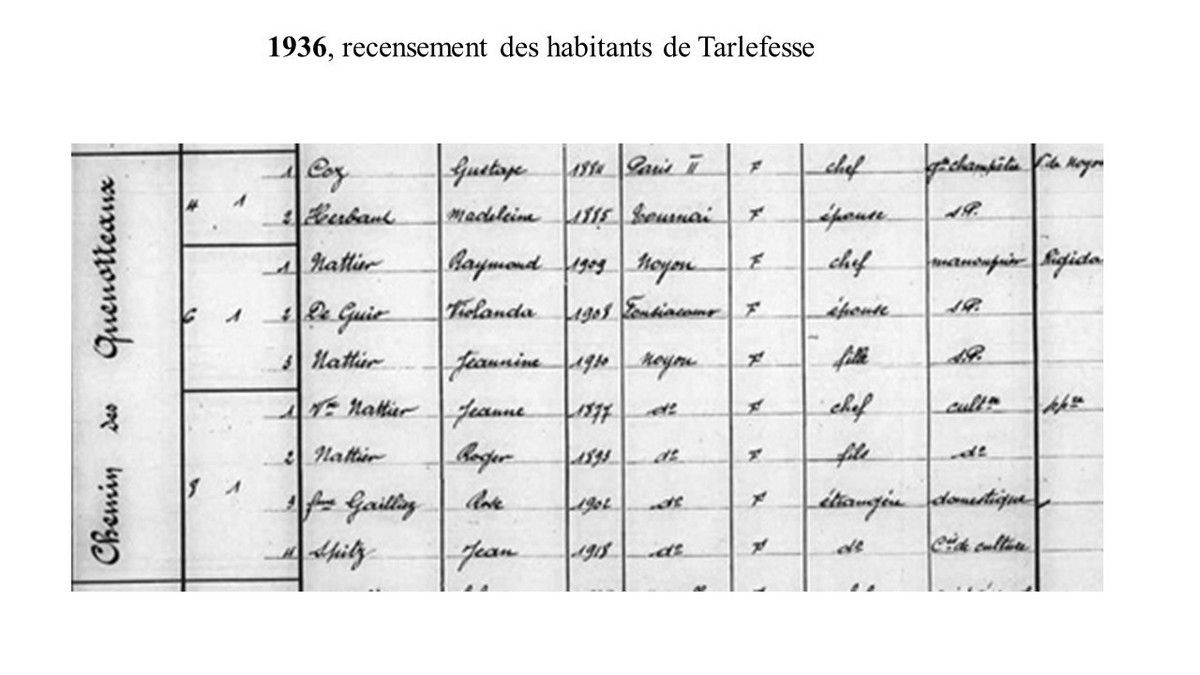 1936, recensement des habitants de Tarlefesse
Chemin des Quenotteaux
4 1 1 Coz Gustave 1884 Paris II F chef gde champêtre V. de Noyon
2 Herbant Madeleine 1885 Tournai F épouse s.P.
6 1 1 Nattier Raymond 1909 Noyon F chef manouvrier
2 De Guio Violanda 1908 F épouse s.P.
3 Nattier Jeannine 1930 Noyon F fille s.P.
8 1 1 Vve Nattier Jeanne 1877 do F chef cultce
2 Nattier Roger 1893 do F fils do
3 fme Gailliez Rose 1902 do F étrangère domestique
4 Spitz Jean 1918 do F do de culture